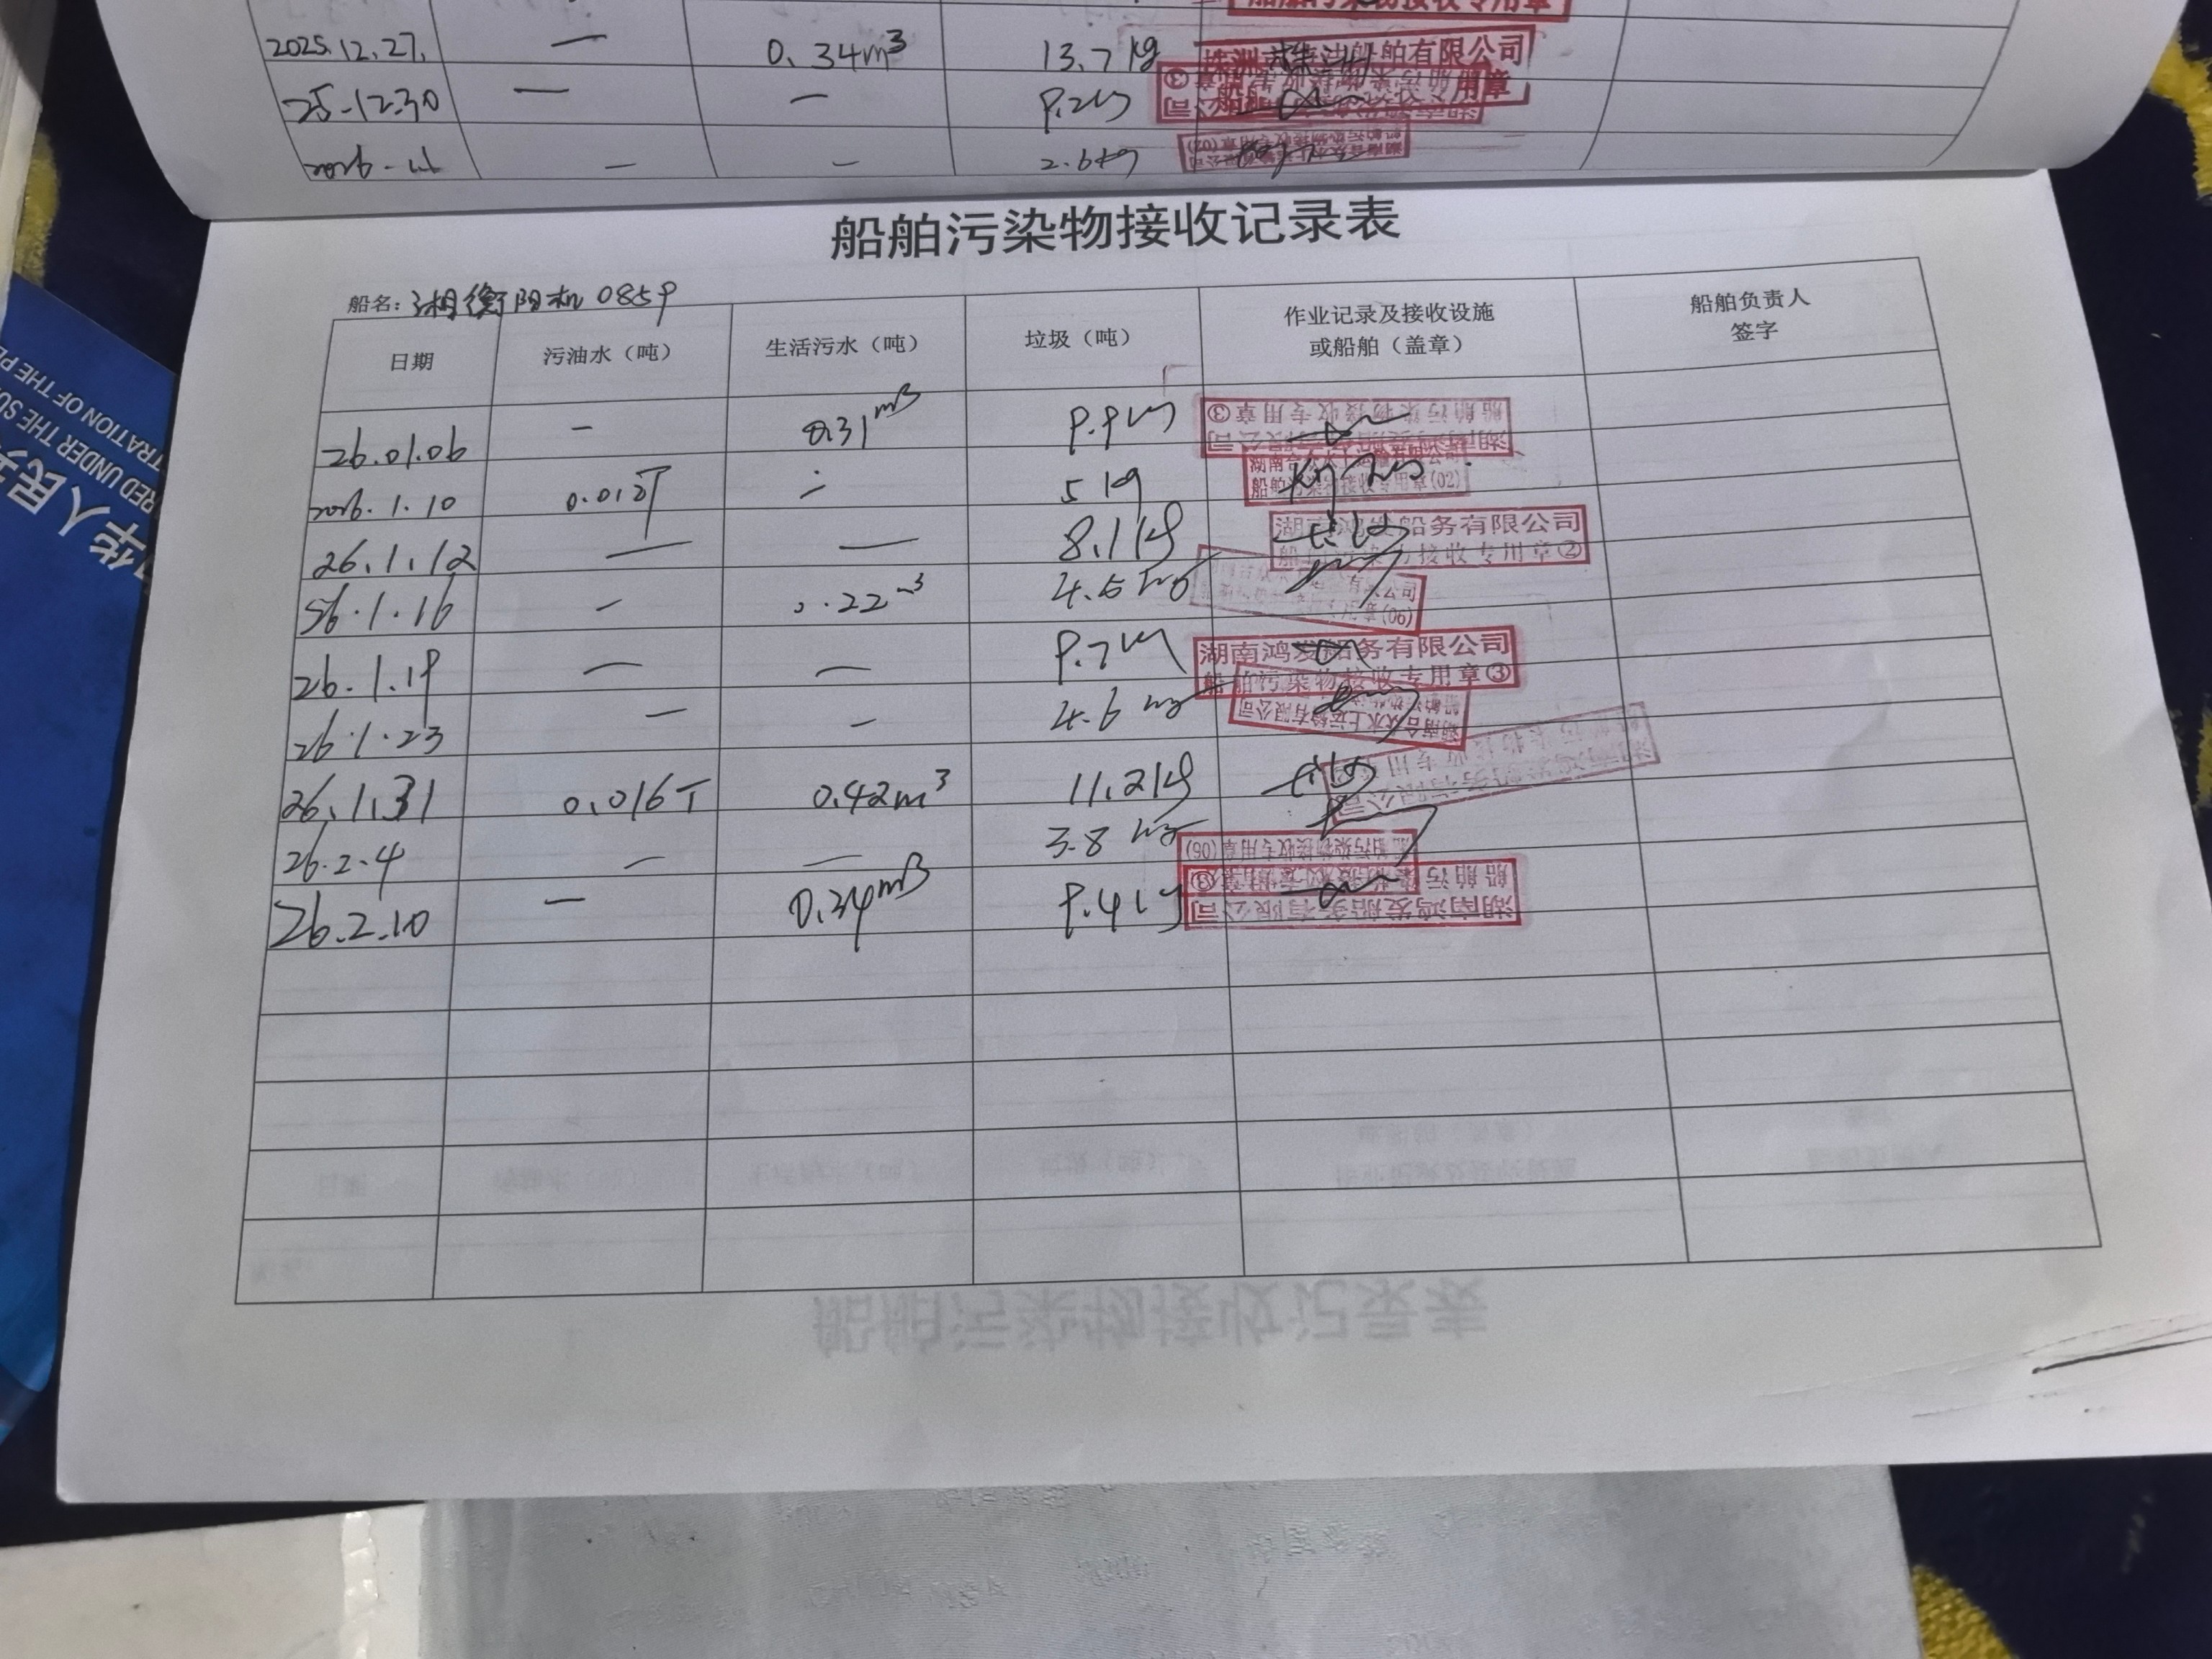 2025.12.27. — 0.34m³ 13.7kg
25.12.30 — — 9.2kg
2.6kg
船舶污染物接收记录表
船名：湘衡阳机0859
日期 污油水（吨） 生活污水（吨） 垃圾（吨） 作业记录及接收设施或船舶（盖章） 船舶负责人签字
26.01.06 — 0.31m³ 9.9kg
船舶污染物接收专用章③
2026.1.10 — 5kg
船舶污染物接收专用章(02)
26.1.12 — — 8.1kg
湖南鸿发船务有限公司
船舶污染物接收专用章②
26.1.16 — 0.22m³ 4.5kg
26.1.19 — — 9.7kg
湖南鸿发船务有限公司
船舶污染物接收专用章③
26.1.23 — — 4.6kg
湖南合众水上运输有限公司
26.1.31 0.016T 0.42m³ 11.2kg
26.2.4 — — 3.8kg
船舶污染物接收专用章(06)
26.2.10 — 0.34m³ 9.4kg
湖南鸿发船务有限公司
船舶污染物接收专用章③